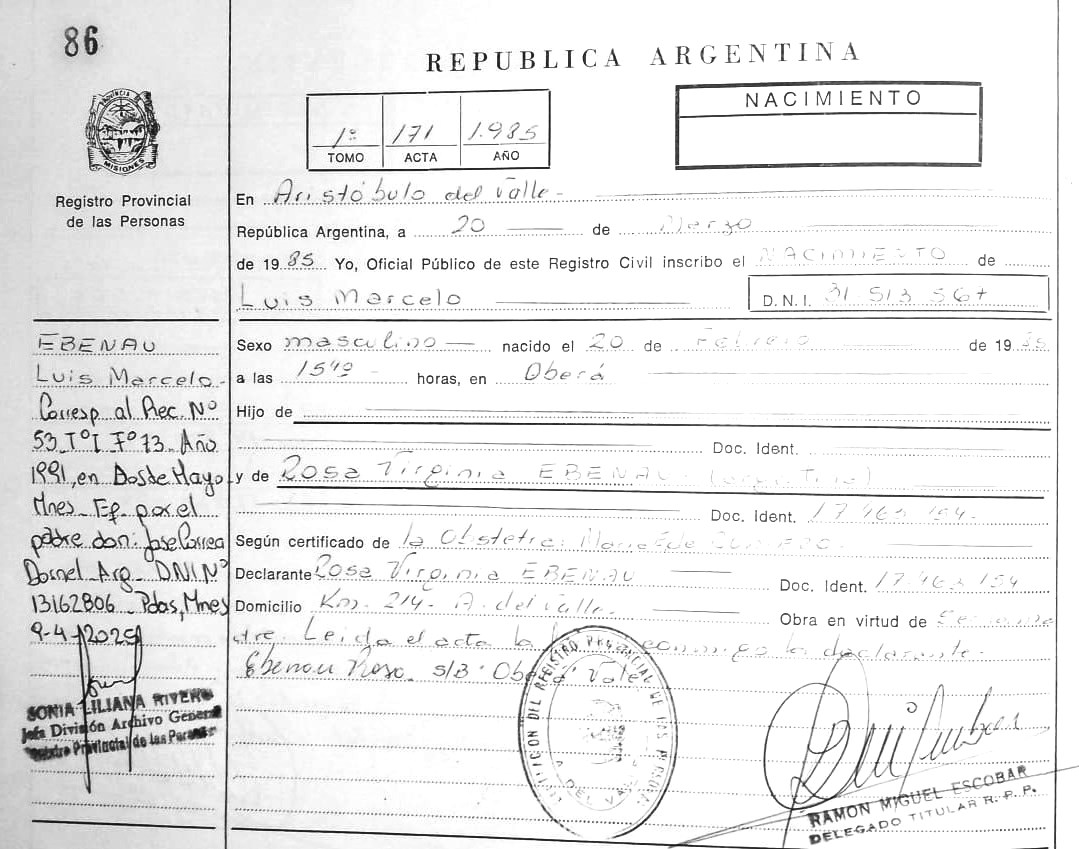 86
REPUBLICA ARGENTINA
PROVINCIA DE
MISIONES
Registro Provincial
de las Personas
1º 171 1.985
TOMO ACTA AÑO
NACIMIENTO
En Aristóbulo del Valle.-
República Argentina, a 20 de Marzo
de 1985 Yo, Oficial Público de este Registro Civil inscribo el NACIMIENTO de
Luis Marcelo D.N.I. 31 513 567
Sexo masculino nacido el 20 de Febrero de 1985
a las 15 horas, en Oberá
Hijo de
Doc. Ident.
y de Rosa Virginia EBENAU (argentina)
Doc. Ident. 17.463.154.
Según certificado de la Obstetra:
Declarante Rosa Virginia EBENAU Doc. Ident. 17.463 154
Domicilio Km. 214. A. del Valle. Obra en virtud de Ser madre
Leida el acta la conmigo la declarante.
Ebenau Rosa. s/B "Oberá" Vale.
EBENAU
Luis Marcelo
Corresp al Rec. Nº
53 TºI Fº73 Año
1991, en Dos de Mayo
Mnes Ef. por el
padre don: Jose Correa
Dornel Arg. DNI Nº
13162806 Pdas, Mnes
9-4-2025
SONIA LILIANA RIVERO
Jefa División Archivo General
Registro Provincial de las Personas
DEL REGISTRO PROVINCIAL DE LAS PERSONAS
A. DEL VALLE
RAMON MIGUEL ESCOBAR
DELEGADO TITULAR R. P. P.